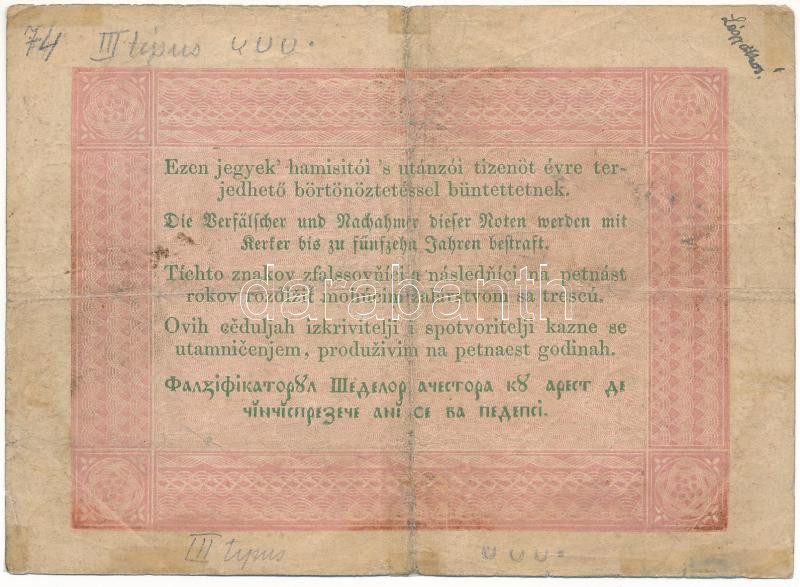 74 III típus
Ezen jegyek' hamisitói 's utánzói tizenöt évre ter-
jedhető börtönöztetéssel büntettetnek.
Die Verfälscher und Nachahmer dieser Noten werden mit
Kerker bis zu fünfzehn Jahren bestraft.
Tíchto znakov zfalssovňíci a následňíci na petnást
rokov rozdížiť mohúcim žalárstvom sa trescú.
Ovih cěduljah izkrivitelji i spotvoritelji kazne se
utamničenjem, produživim na petnaest godinah.
Фалꙁіфікаторꙋл Шеделор ачестора кꙋ арест де
чінчіспреꙁече ані се ва педепсі.
darabanth
III típus